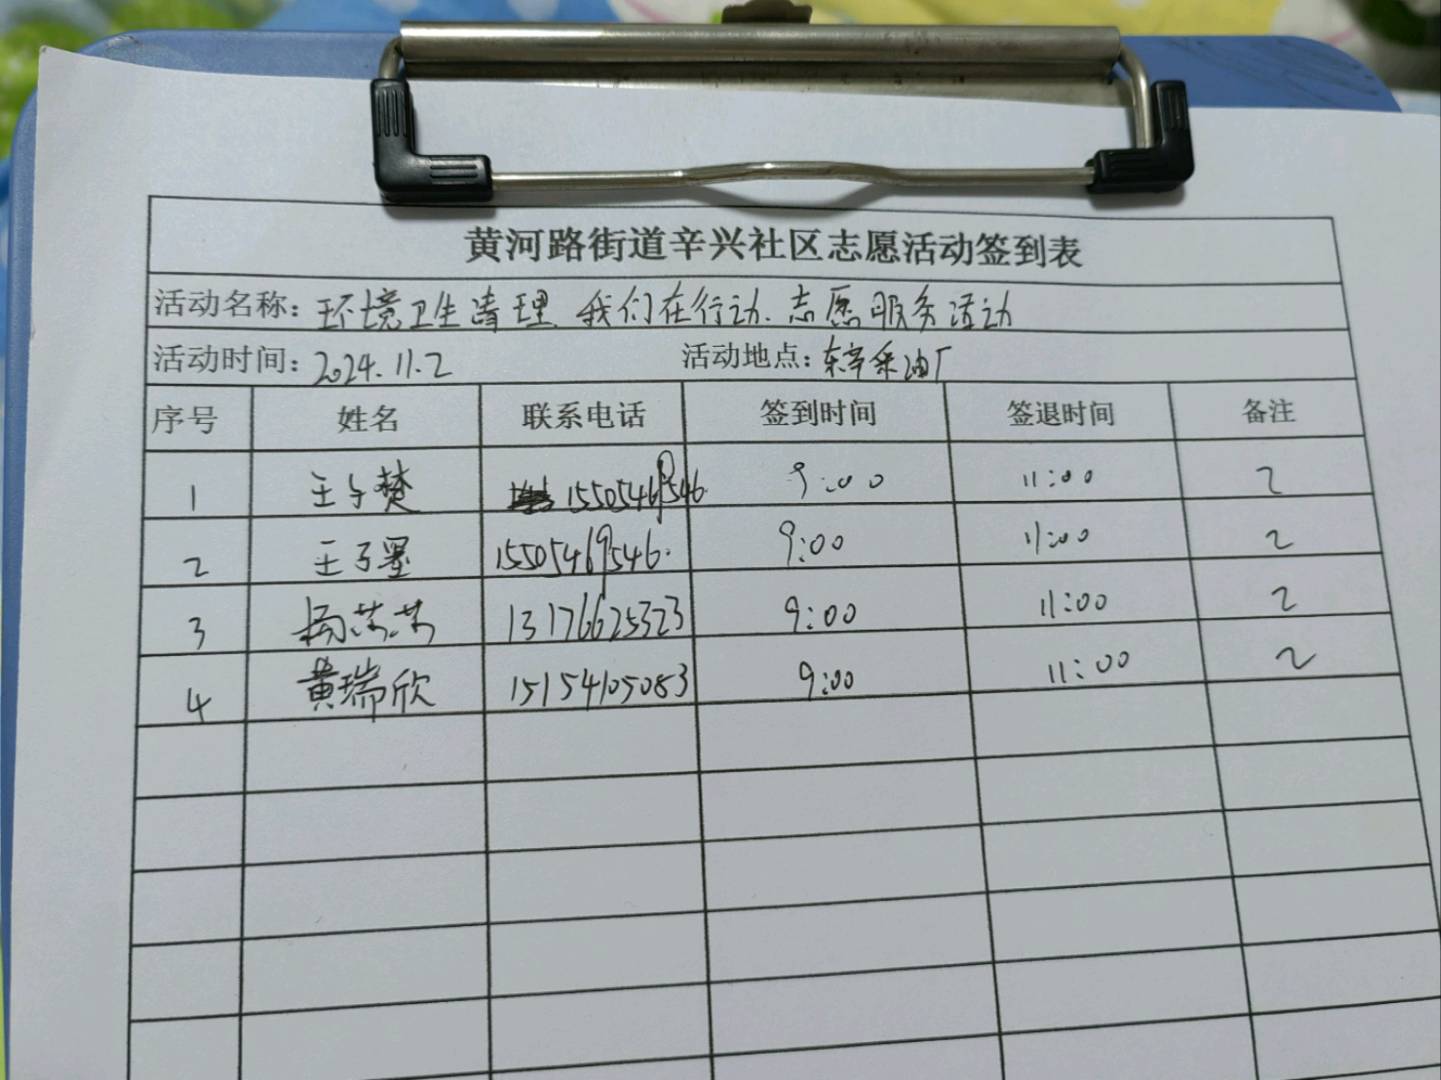 黄河路街道辛兴社区志愿活动签到表
活动名称：环境卫生清理、我们在行动、志愿服务活动
活动时间：2024.11.2 活动地点：东辛采油厂
序号 姓名 联系电话 签到时间 签退时间 备注
1 王子 15505469546 9:00 11:00 2
2 王子墨 15505469546. 9:00 11:00 2
3 杨 13176625323 9:00 11:00 2
4 黄瑞欣 15154105083 9:00 11:00 2